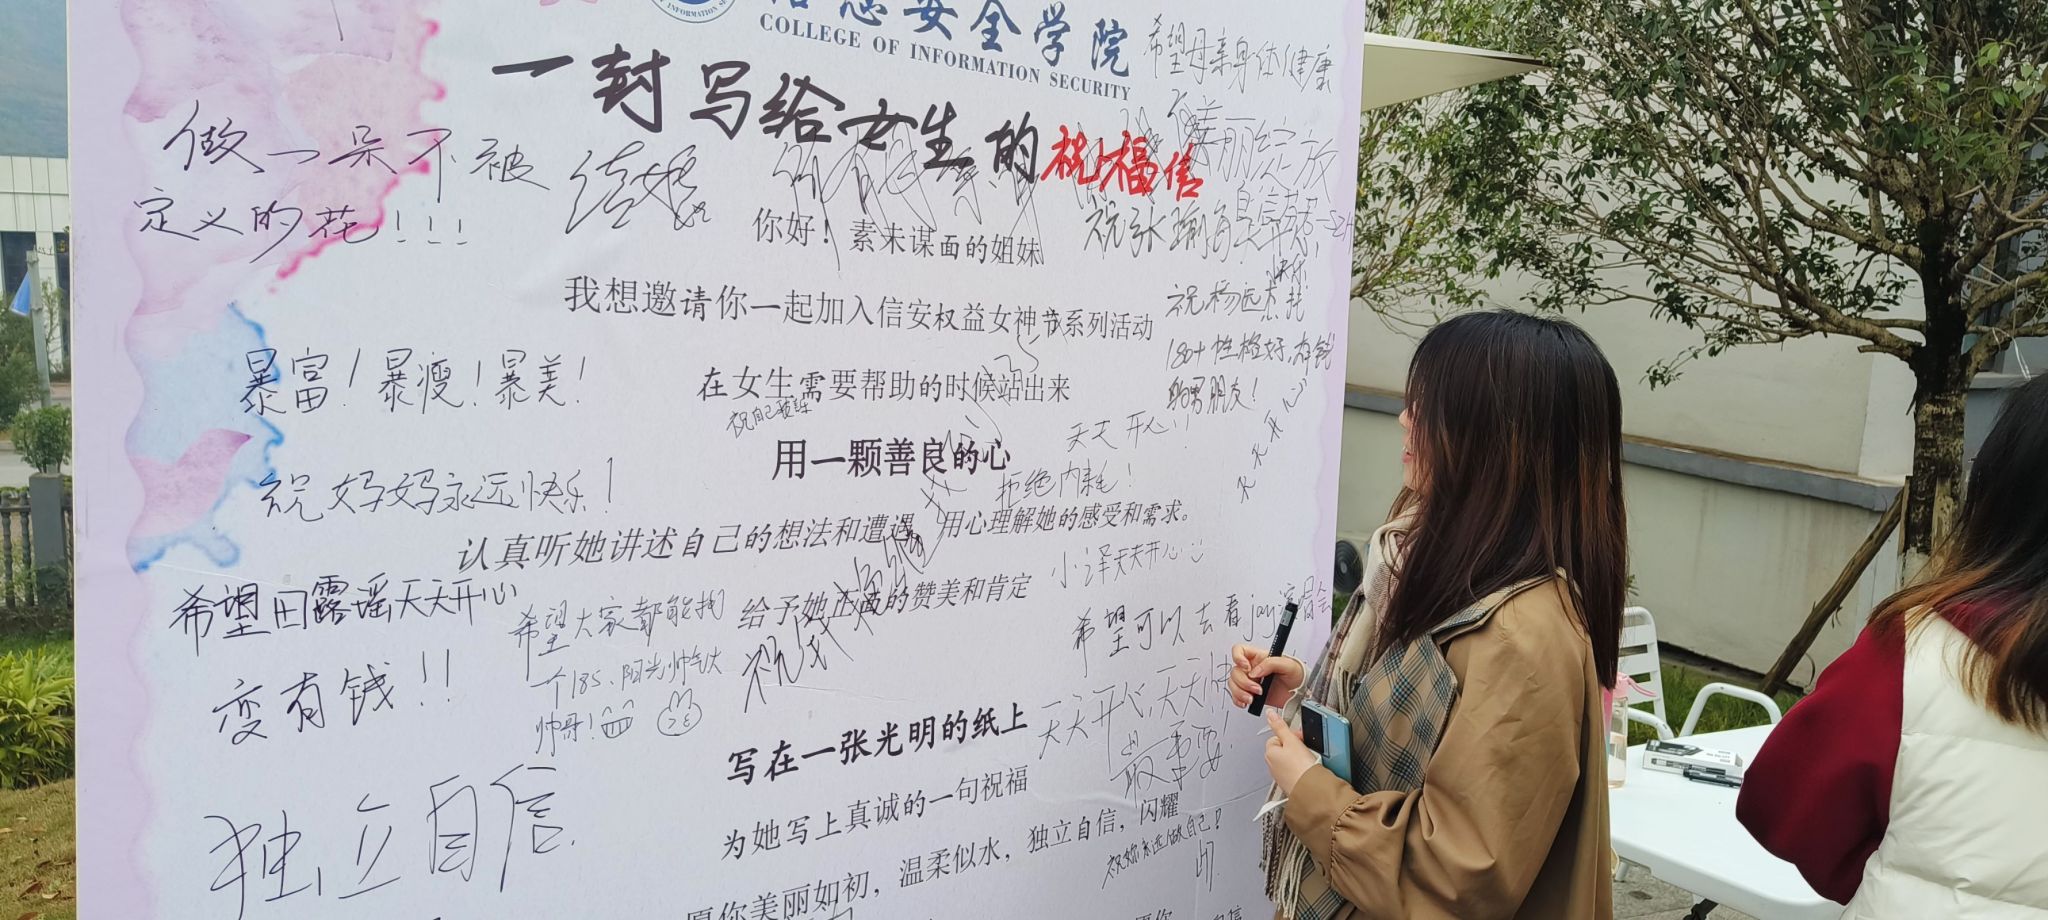 信息安全学院
COLLEGE OF INFORMATION SECURITY
一封写给女生的祝福信
希望母亲身体健康
做一朵不被
定义的花!!!
美丽绽放
你好!素未谋面的姐妹
我想邀请你一起加入信安权益女神节系列活动
快乐
180+性格好,有钱
的男朋友!
暴富!暴瘦!暴美!
在女生需要帮助的时候站出来
用一颗善良的心
天天开心!!
天天开心
拒绝内耗!
祝妈妈永远快乐!
认真听她讲述自己的想法和遭遇 用心理解她的感受和需求。
小泽天天开心
希望田露瑶天天开心
变有钱!!
希望大家都能拥
一个185、阳光帅气大
帅哥!
给予她正面的赞美和肯定
希望可以去看jay演唱会
天天开心,天天快
最重要!
写在一张光明的纸上
为她写上真诚的一句祝福
独立自信
愿你美丽如初,温柔似水,独立自信,闪耀
祝你永远做自己!